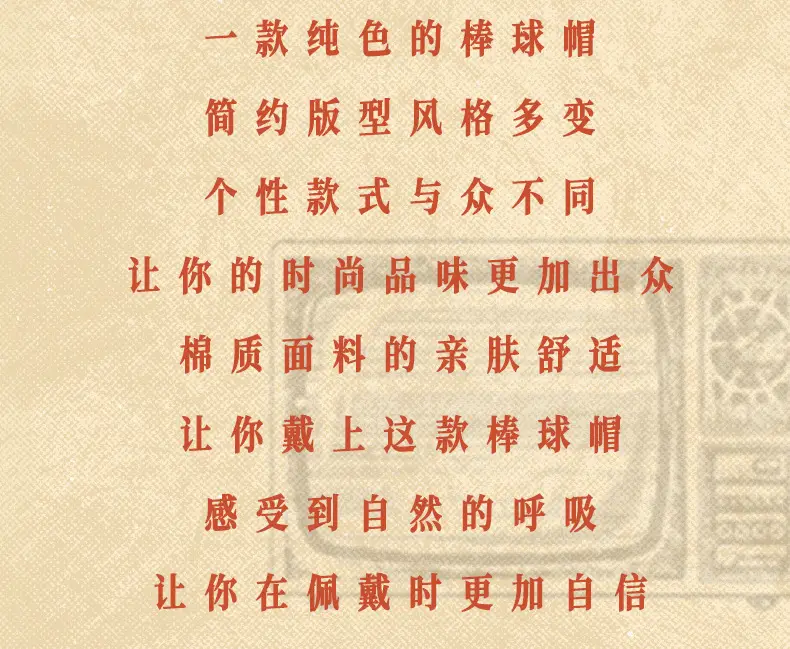 一款纯色的棒球帽
简约版型风格多变
个性款式与众不同
让你的时尚品味更加出众
棉质面料的亲肤舒适
让你戴上这款棒球帽
感受到自然的呼吸
让你在佩戴时更加自信